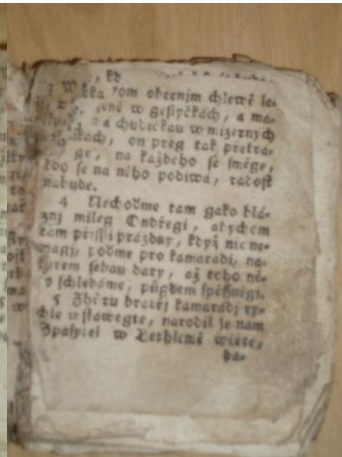 , kd
w tom obecnjm chlewě le-
geně w gesličkách, a ma-
a chudičkau w mizerných
kách, on preg tak překrá-
ge, na každého se směge,
kdo se na něho podiwa, radost
nabude.
4 Nechoďme tam gako blá-
znj mileg Ondřegi, abychom
tam přissli prázdny, když nic ne-
magj, poďme pro kamarádi, na-
berem sebau dary, až toho ně-
o schledáme, půgdem spěssněgi.
5 Zhůru bratrj kamarádj ry-
chle wstáwegte, narodil se nam
Spasytel w Betlémě wězte,
ha-